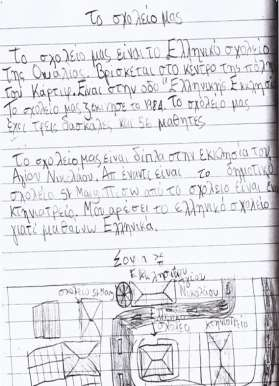 Το σχολείο μας
Το σχολείο μας είναι το Ελληνικό σχολείο
Της Ουαλίας. Βρίσκεται στο κέντρο της πόλη
του Καρτιφ. Είναι στην οδό "Ελληνικής Εκκλησί
Το σχολείο μας ξεκίνησε το 1984. Το σχολείο μας
έχει τρεις δασκάλες και 52 μαθητές
Το σχολείο μας είναι δίπλα στην εκκλησία του
Αγίου Νικολάου. Απέναντι είναι το δημοτικό
σχολείο St Mary. Πίσω από το σχολείο είναι
κτηνιατρείο. Μου αρέσει το ελληνικό σχολείο
γιατί μαθαίνω Ελληνικά.
Εκκλησία
Αγίου
Νικολάου
σχολείο St Mary
Ελληνικό
σχολείο
κτηνιατρείο